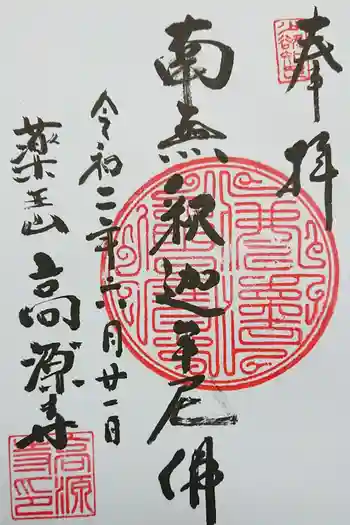 奉拝
南無釈迦牟尼佛
令和二年六月廿一日
薬王山
高源寺
高源寺印